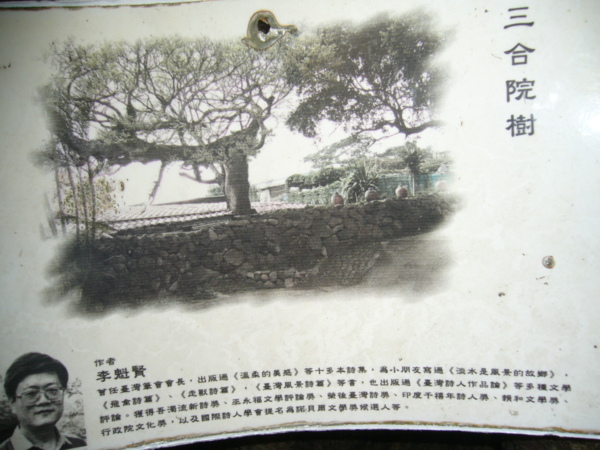 三合院樹
作者
李魁賢
曾任臺灣筆會會長，出版過《溫柔的美感》等十多本詩集，為小朋友寫過《淡水是風景的故鄉》，
《飛禽詩篇》、《走獸詩篇》、《臺灣風景詩篇》等書，也出版過《臺灣詩人作品論》等多種文學
評論。獲得吾濁流新詩獎、巫永福文學評論獎、榮後臺灣詩獎、印度千禧年詩人獎、賴和文學獎、
行政院文化獎，以及國際詩人學會提名為諾貝爾文學獎候選人等。